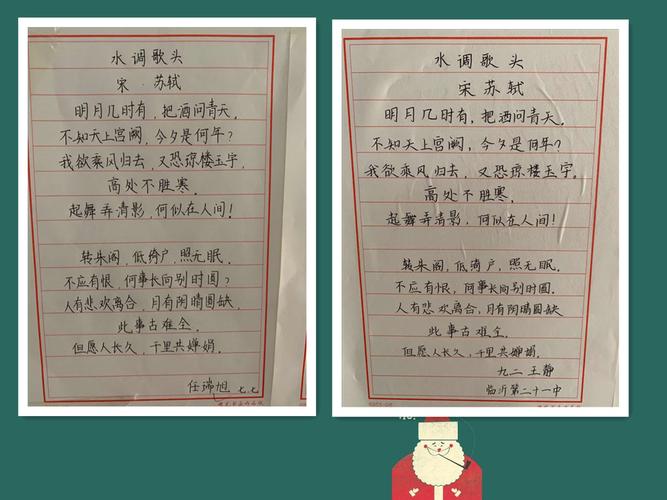 水调歌头
宋 苏轼
明月几时有，把酒问青天。
不知天上宫阙，今夕是何年？
我欲乘风归去，又恐琼楼玉宇，
高处不胜寒。
起舞弄清影，何似在人间！
转朱阁，低绮户，照无眠。
不应有恨，何事长向别时圆？
人有悲欢离合，月有阴晴圆缺，
此事古难全。
但愿人长久，千里共婵娟。
任瑞旭 七.七
水调歌头
宋 苏轼
明月几时有，把酒问青天。
不知天上宫阙，今夕是何年？
我欲乘风归去，又恐琼楼玉宇，
高处不胜寒。
起舞弄清影，何似在人间！
转朱阁，低绮户，照无眠。
不应有恨，何事长向别时圆。
人有悲欢离合，月有阴晴圆缺
此事古难全。
但愿人长久，千里共婵娟。
九二 王静
临沂第二十一中